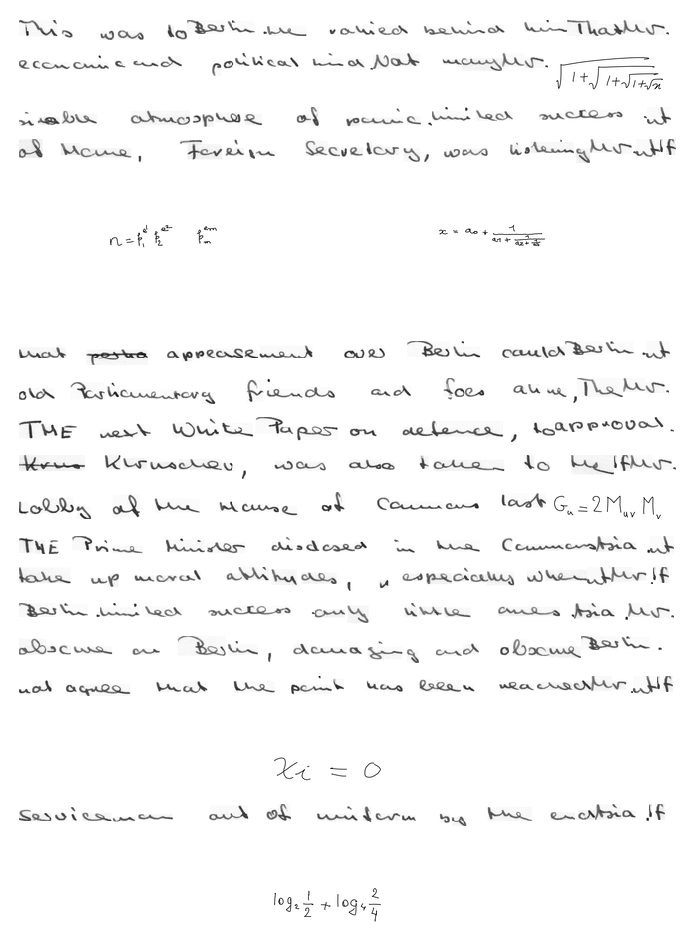 This was to Berlin. He rallied behind him That Mr.
economic and political kind. Not many Mr. \sqrt{1+\sqrt{1+\sqrt{1+\sqrt{x}}}}
sirable atmosphere of panic. limited success it
of Home, Foreign Secretary, was listening Mr. it If
n = p_1^{e1} p_2^{e2} p_m^{em} x = a_0 + \frac{1}{a_1 + \frac{1}{a_2 + }}
that appeasement over Berlin could Berlin it
old Parliamentary friends and foes alike, The Mr.
THE next White Paper on defence, to approval.
Khruschev, was also taken to He If Mr.
Lobby of the House of Commons last G_u = 2 M_{uv} M_v
THE Prime Minister disclosed in the Commons Asia it
take up moral attitudes, " especially when it Mr. If
Berlin. limited success only little ones Asia. Mr.
obscure on Berlin, damaging and obscure Berlin.
not agree that the point has been reached Mr. it If
x_i = 0
serviceman out of uniform by the end Asia. If
\log_2 \frac{1}{2} + \log_4 \frac{2}{4}